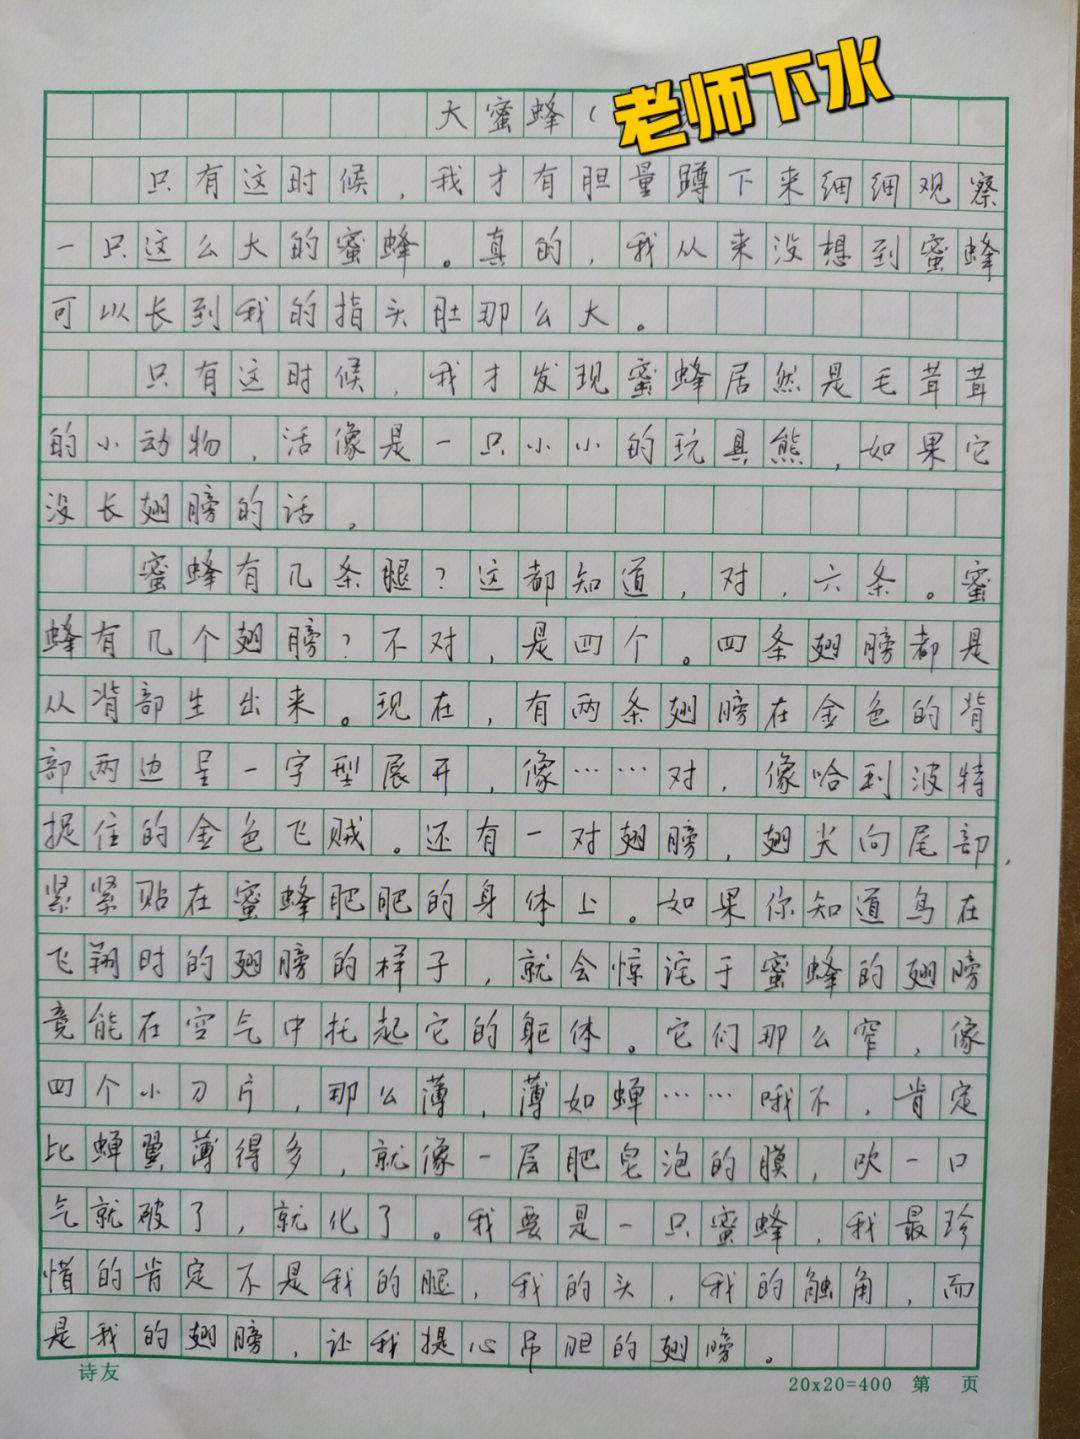 大蜜蜂（老师下水
只有这时候，我才有胆量蹲下来细细观察
一只这么大的蜜蜂。真的，我从来没想到蜜蜂
可以长到我的指头肚那么大。
只有这时候，我才发现蜜蜂居然是毛茸茸
的小动物，活像是一只小小的玩具熊，如果它
没长翅膀的话，
蜜蜂有几条腿？这都知道，对，六条。蜜
蜂有几个翅膀？不对，是四个。四条翅膀都是
从背部生出来。现在，有两条翅膀在金色的背
部两边呈一字型展开，像……对，像哈利波特
捉住的金色飞贼。还有一对翅膀，翅尖向尾部，
紧紧贴在蜜蜂肥肥的身体上。如果你知道鸟在
飞翔时的翅膀的样子，就会惊诧于蜜蜂的翅膀
竟能在空气中托起它的躯体。它们那么窄，像
四个小刀片，那么薄，薄如蝉……哦不，肯定
比蝉翼薄得多，就像一层肥皂泡的膜，吹一口
气就破了，就化了。我要是一只蜜蜂，我最珍
惜的肯定不是我的腿，我的头，我的触角，而
是我的翅膀，让我提心吊胆的翅膀。
诗友
20x20=400 第 页